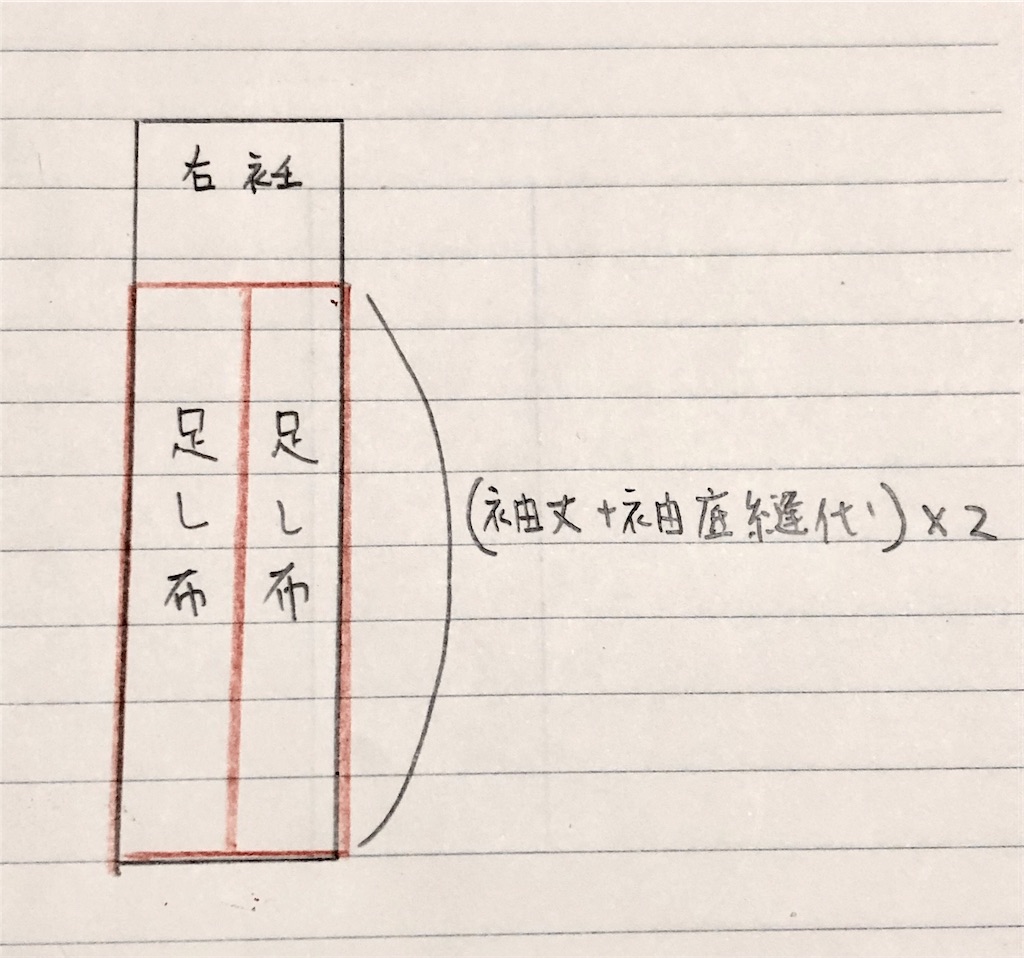 右 衽
足し布
足し布
(袖丈+袖底縫代)×2